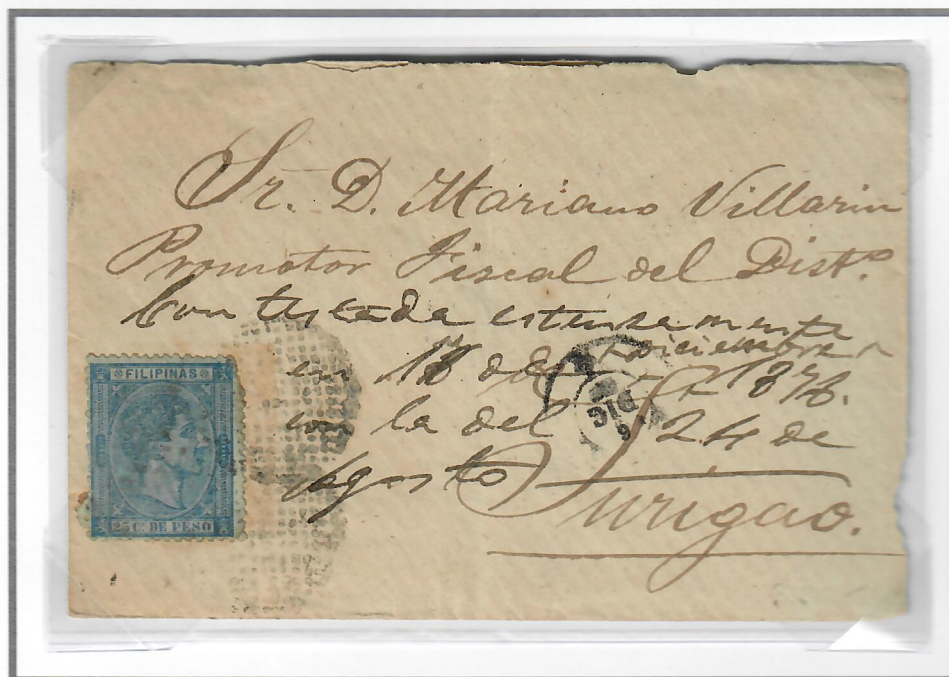 Sr. D. Mariano Villarin
Promotor Fiscal del Distº
Contestada estensamente
en 18 de Diciembre
1878.
con la del 24 de
Agosto
Surigao.
FILIPINAS
25 C. DE PESO
DIC